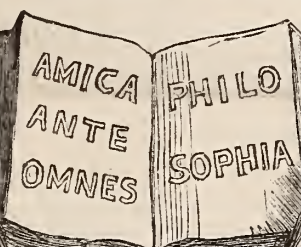 AMICA
ANTE
OMNES
PHILO
SOPHIA